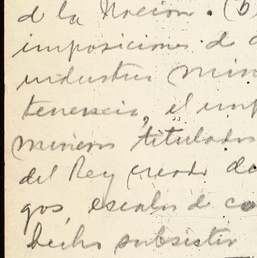 de la Nación. (b
imposiciones de
industria min
tenencia, el imp
mineros titulados
del Rey creado de
gos, escalas de co
hecho subsistir